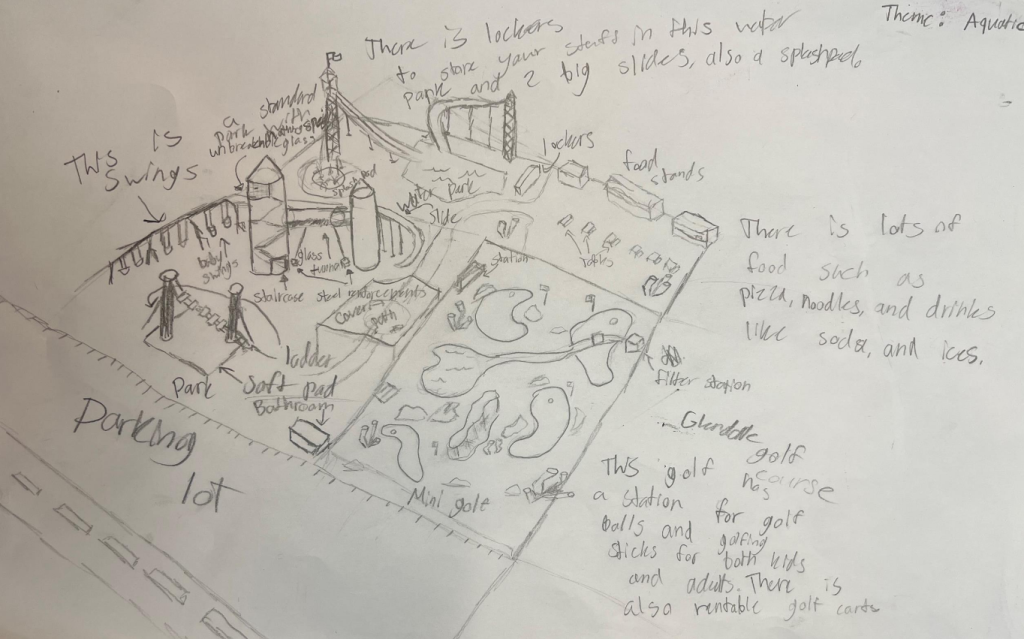 Theme: Aquatic
There is lockers
to store your stuff in this water
park and 2 big slides, also a splashpad.
a standard
park with
unbreakable glass
This is
Swings
lockers
food
stands
splashpad
water park
water
slide
baby
swings
glass
tunnel
staircase
steel reinforcements
station
tables
Covered
path
ladder
Soft pad
Park
Bathroom
Parking
lot
Mini golf
filter station
There is lots of
food such as
pizza, noodles, and drinks
like soda, and ices.
Glendale
golf
course
This golf has
a station for golf
balls and golfing
sticks for both kids
and adults. There is
also rentable golf carts